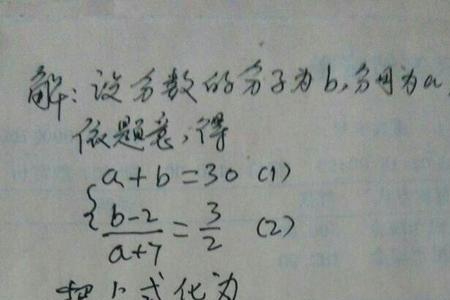 解:设分数的分子为b,分母为a,
依题意,得
a+b=30 (1)
(b-2)/(a+7)=3/2 (2)
把上式化为